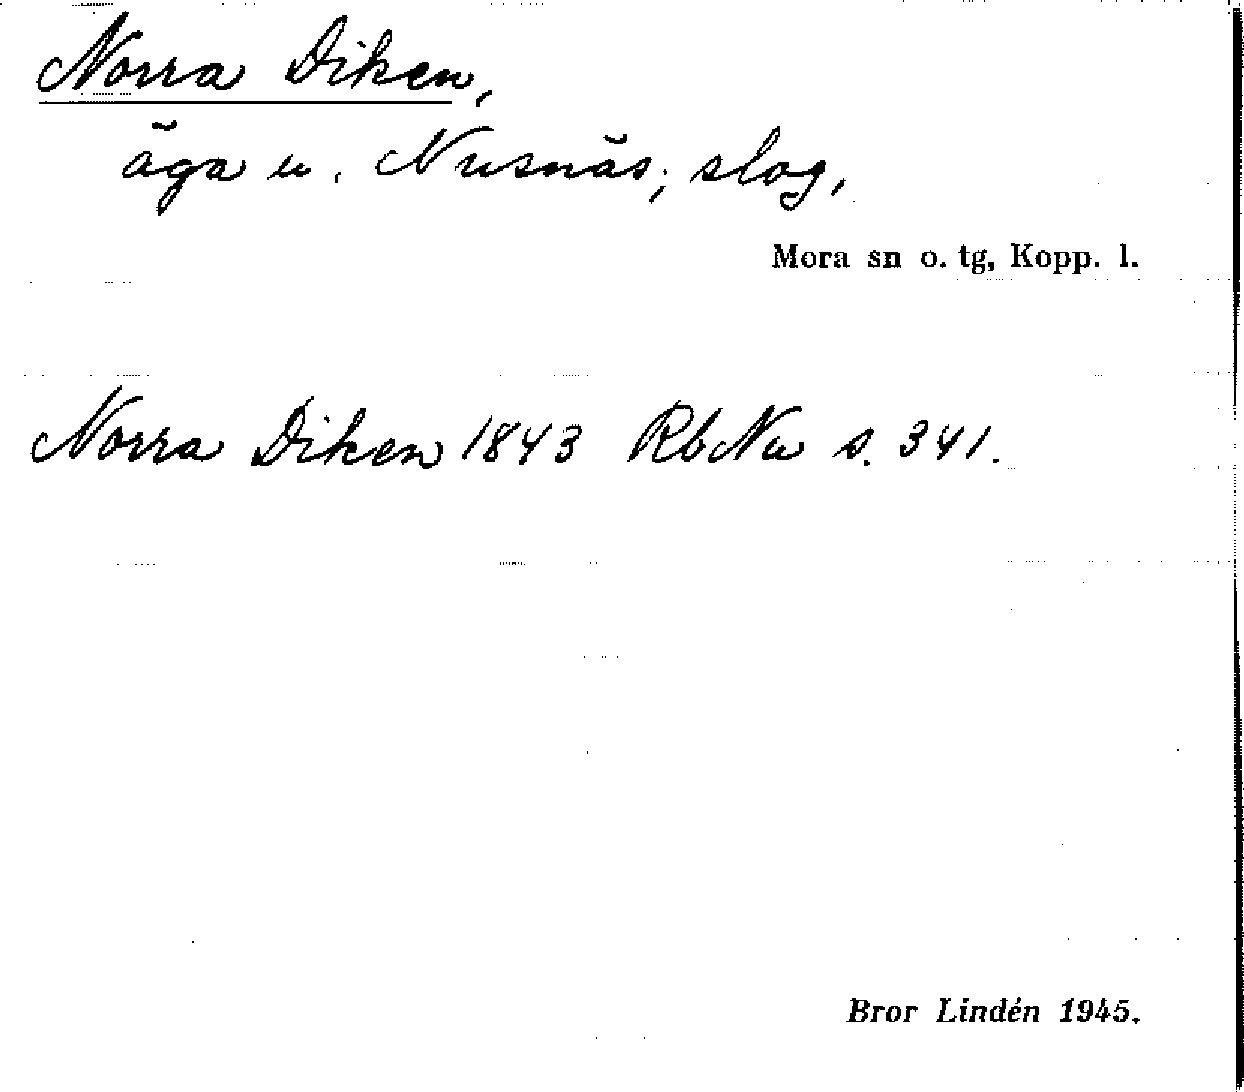 Norra Diken,
äga u. Nusnäs; slog,
Mora sn o. tg, Kopp. l.
Norra Diken 1843 RbNu s. 341.
Bror Lindén 1945.